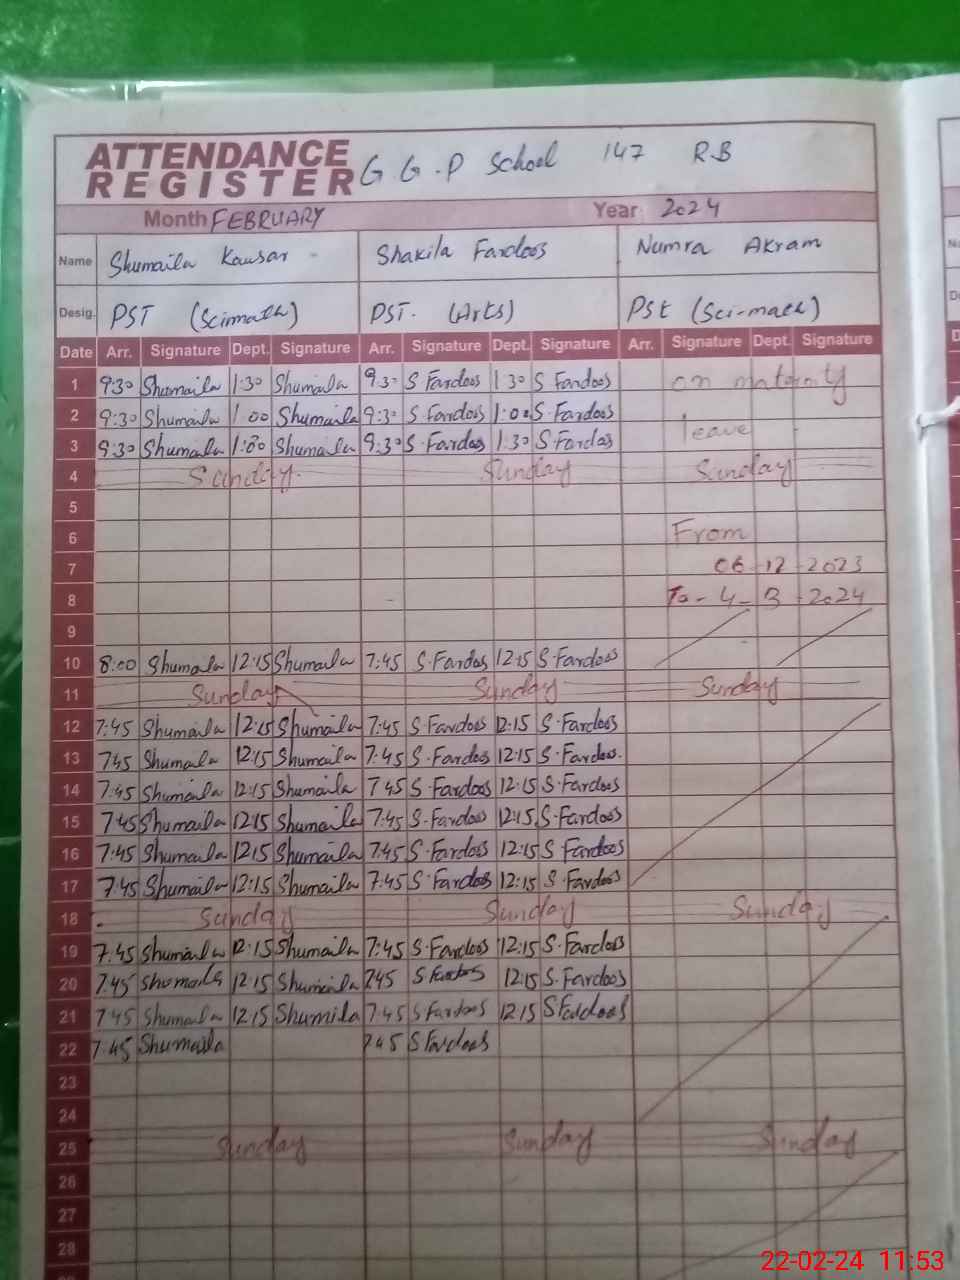 ATTENDANCE
REGISTER G G.P School 147 R.B
Month FEBRUARY Year 2024
Name Shumaila Kausar Shakila Fardoos Numra Akram
Desig. PST (Scimath) PST. (Arts) PSt (Sci-math)
Date Arr. Signature Dept. Signature Arr. Signature Dept. Signature Arr. Signature Dept. Signature
1 9:30 Shumaila 1:30 Shumaila 9:30 S Fardoos 1:30 S Fardoos on maternity
2 9:30 Shumaila 1:00 Shumaila 9:30 S Fardoos 1:00 S.Fardoos leave
3 9:30 Shumaila 1:00 Shumaila 9:30 S.Fardoos 1:30 S.Fardos
4 Sunday. Sunday Sunday
5
6 From
7 06-12-2023
8 To-4-3-2024
9
10 8:00 Shumaila 12:15 Shumaila 7:45 S.Fardos 12:15 S.Fardoos
11 Sunday Sunday Sunday
12 7:45 Shumaila 12:15 Shumaila 7:45 S.Fardoos 12:15 S.Fardoos
13 7:45 Shumaila 12:15 Shumaila 7:45 S.Fardoos 12:15 S.Fardoos.
14 7:45 Shumaila 12:15 Shumaila 7:45 S.Fardoos 12:15 S.Fardoos
15 7:45 Shumaila 12:15 Shumaila 7:45 S.Fardoos 12:15 S.Fardoos
16 7:45 Shumaila 12:15 Shumaila 7:45 S.Fardoos 12:15 S Fardoos
17 7:45 Shumaila 12:15 Shumaila 7:45 S.Fardoos 12:15 S.Fardoos
18 Sunday Sunday Sunday
19 7:45 Shumaila 12:15 Shumaila 7:45 S.Fardoos 12:15 S.Fardoos
20 7:45 Shumaila 12:15 Shumaila 7:45 S Fardoos 12:15 S.Fardoos
21 7:45 Shumaila 12:15 Shumila 7:45 S Fardoos 12:15 S Fardoos
22 7:45 Shumaila 7:45 S Fardoos
23
24
25 Sunday Sunday Sunday
26
27
28
22-02-24 11:53